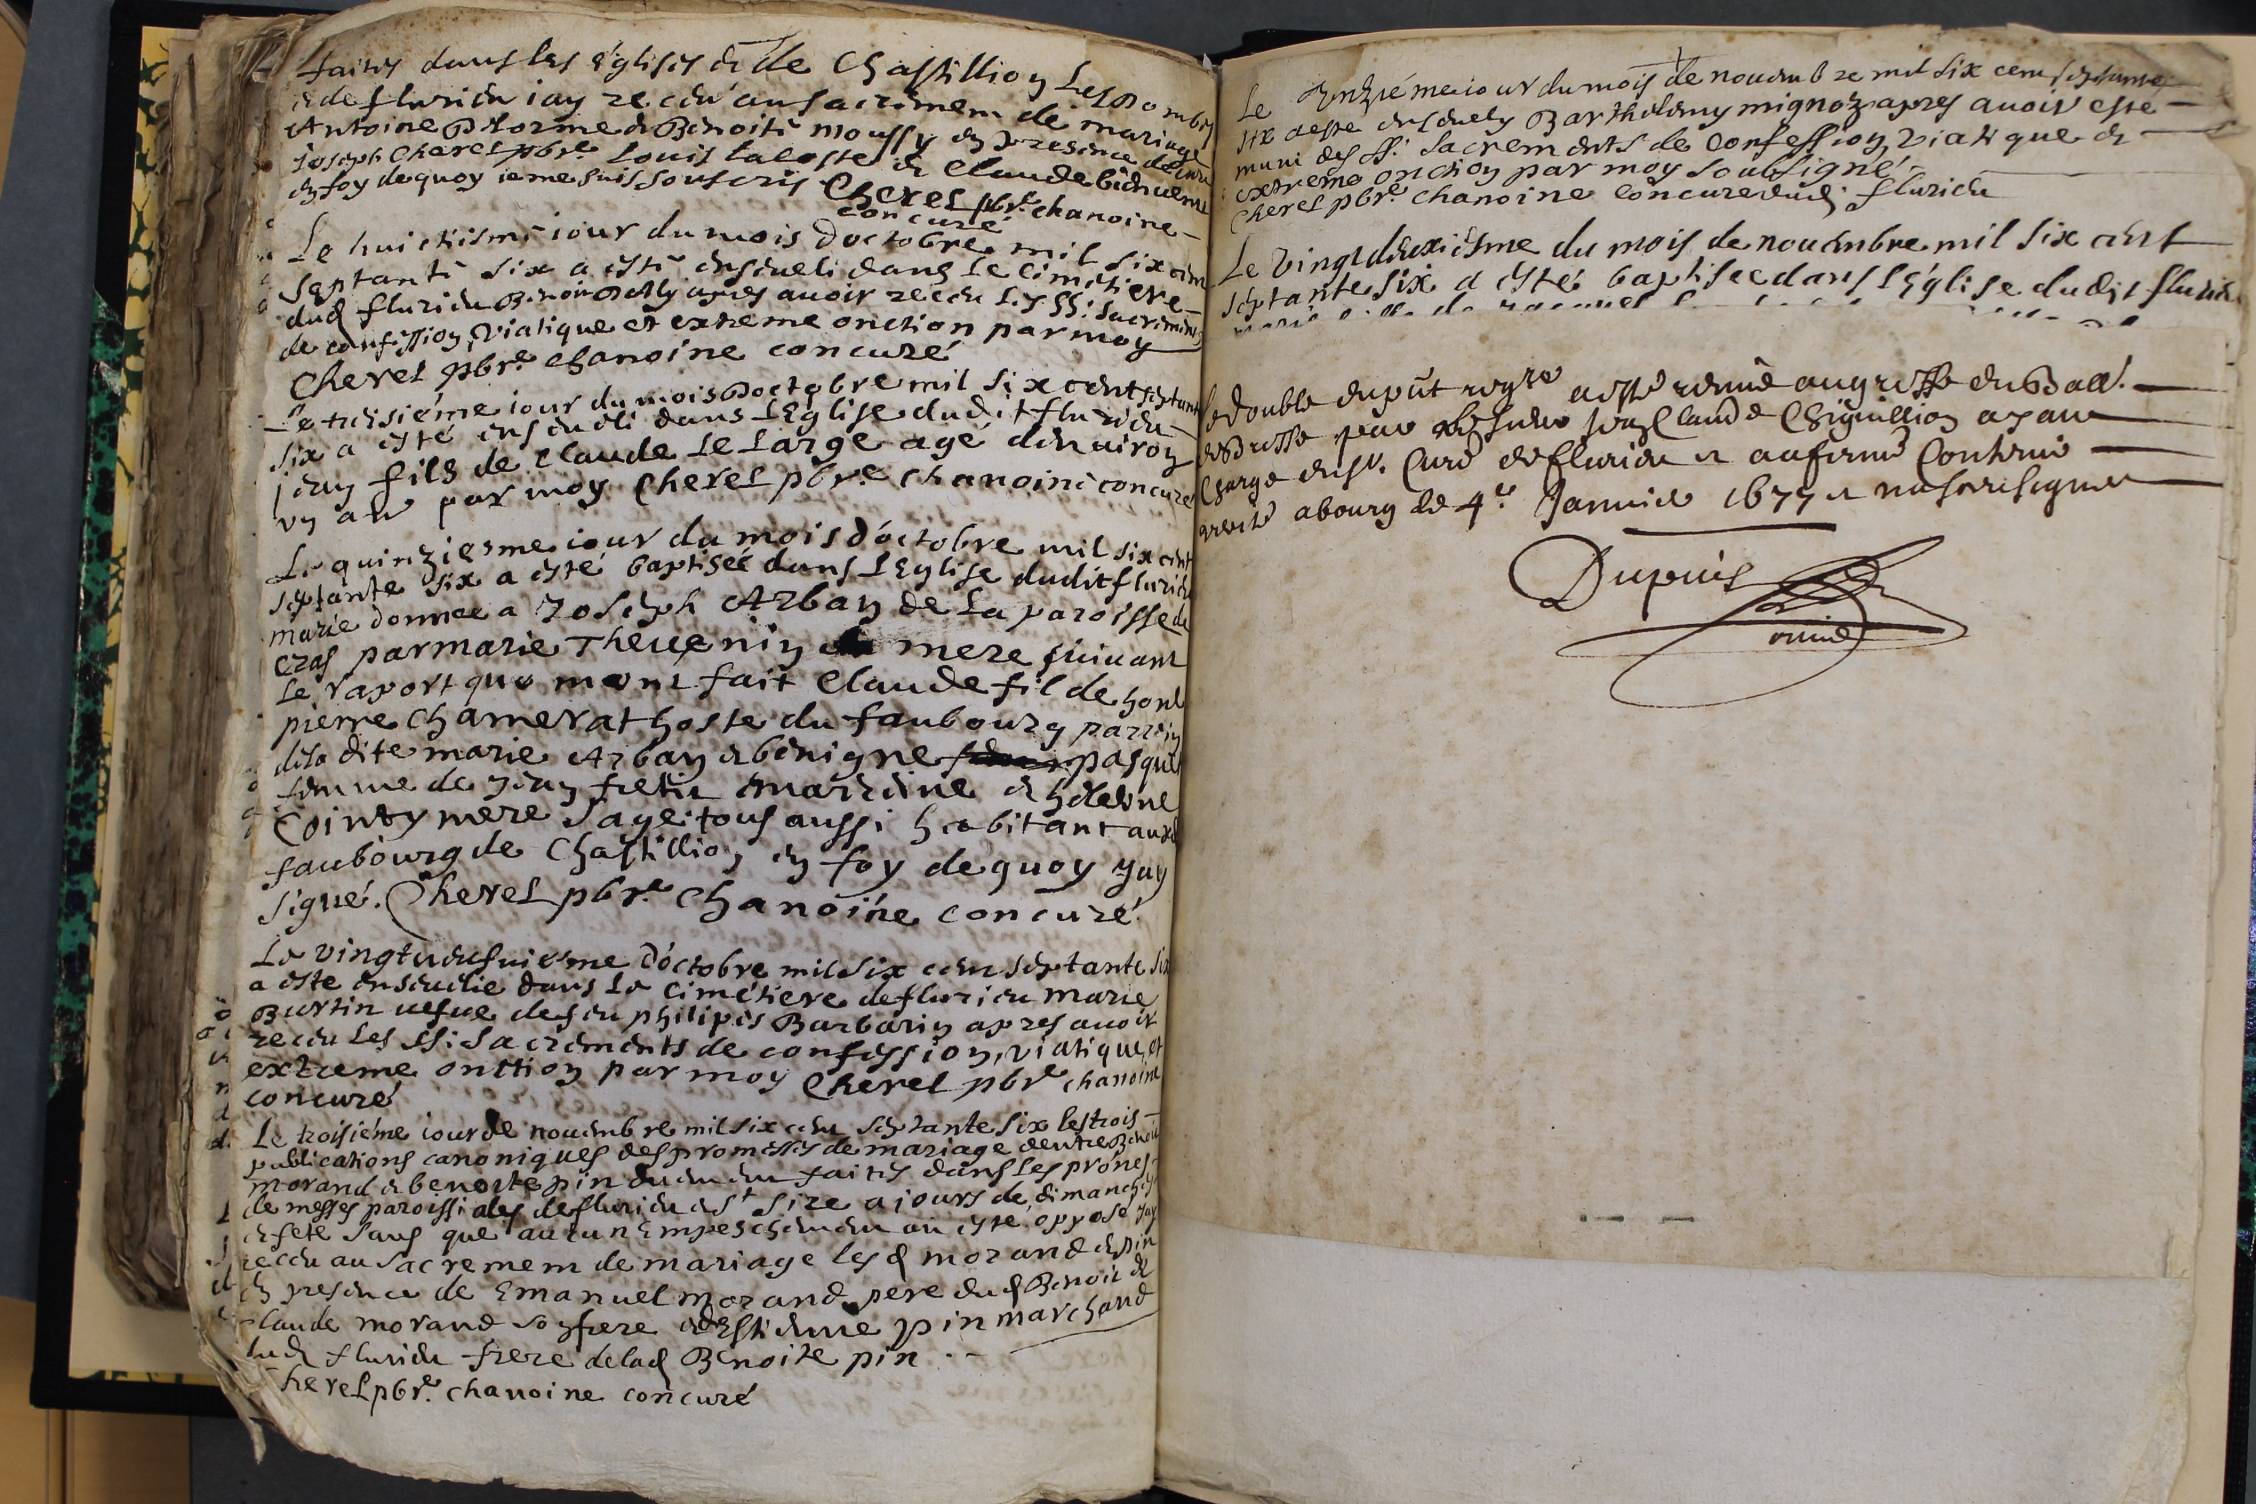 faites dans les Eglises & de Chastillion Les Dombes
& de flurieu iay receu au sacrement de mariage
Antoine Delorme & Benoite moussy en presence de
Joseph Cherel pbre. Louis Lacoste & Claude bienvenu
en foy de quoy ie me suis souscris Cherel pbre. chanoine
concuré
Le huictiesme iour du mois doctobre mil six cent
septante six a esté enseveli dans Le cimetiere
dud flurieu Benoit apres avoir receu Les SS. sacremens
de confession, viatique et extreme onction par moy
Cherel pbre. chanoine concuré
Le iour du mois Doctobre mil six cent septante
six a esté enseveli dans LEglise dudit flurieu
jean fils de Claude Le Large agé denviron
un an par moy Cherel pbre. chanoine concuré
Le quinziesme iour du mois d'octobre mil six cent
septante six a esté baptisée dans LEglise dudit flurieu
marie donnee a Joseph Arban de La paroisse de
Cras par marie Thevenin sa mere suivant
Le raport que mont fait Claude fil de hon
pierre Chamerat hoste du faubourg parrein
de la dite marie Arban & benigne pasquet
femme de jean fretit marreine & helene
Cointy mere sage. tous aussi habitant aux
faubourg de Chastillion en foy de quoy jay
signé. Cherel pbre. Chanoine concuré.
Le d'octobre mil six cent septante six
a esté ensevelie dans Le cimetiere de flurieu marie
Burtin vefve de feu philipes Barbarin apres avoir
receu Les SS. Sacrements de confession, viatique, et
extreme onction par moy Cherel pbre. chanoine
concuré
Le troisiéme iour de novembre mil six cent septante six les trois
publications canoniques des promesses de mariage dentre Benoit
morand & benoite pin faites dans Les prones
de messes paroissiales de flurieu & St. Sire a jours de dimanches
& fete sans que aucun Empeschement ait esté opposé jay
receu au sacrement de mariage les d morand & pin
en presence de Emanuel Morand pere dud Benoit &
Claude morand son frere & Estienne pin marchand
dud flurieu frere de lad Benoite pin
Cherel pbre. chanoine concuré
Le iour du mois de novembre mil six cent septante
six a esté ensevely Barthelemy mignoz apres avoir esté
muni des SS. Sacrements de Confession, viatique &
extreme onction par moy soubsigné
Cherel pbre. chanoine concuré dud flurieu
Le vingt deuxiesme du mois de novembre mil six cent
septante six a esté baptisee dans LEglise dudit flurieu
marie fille de
Le double du pnt regre a esté remis au greffe du Ball.
de Bresse par Claude Chiguillion ayant
Charge du sr. Curé de flurieu a affirmé Contenir
verité a bourg le 4e. Janvier 1677 et
Dupuis